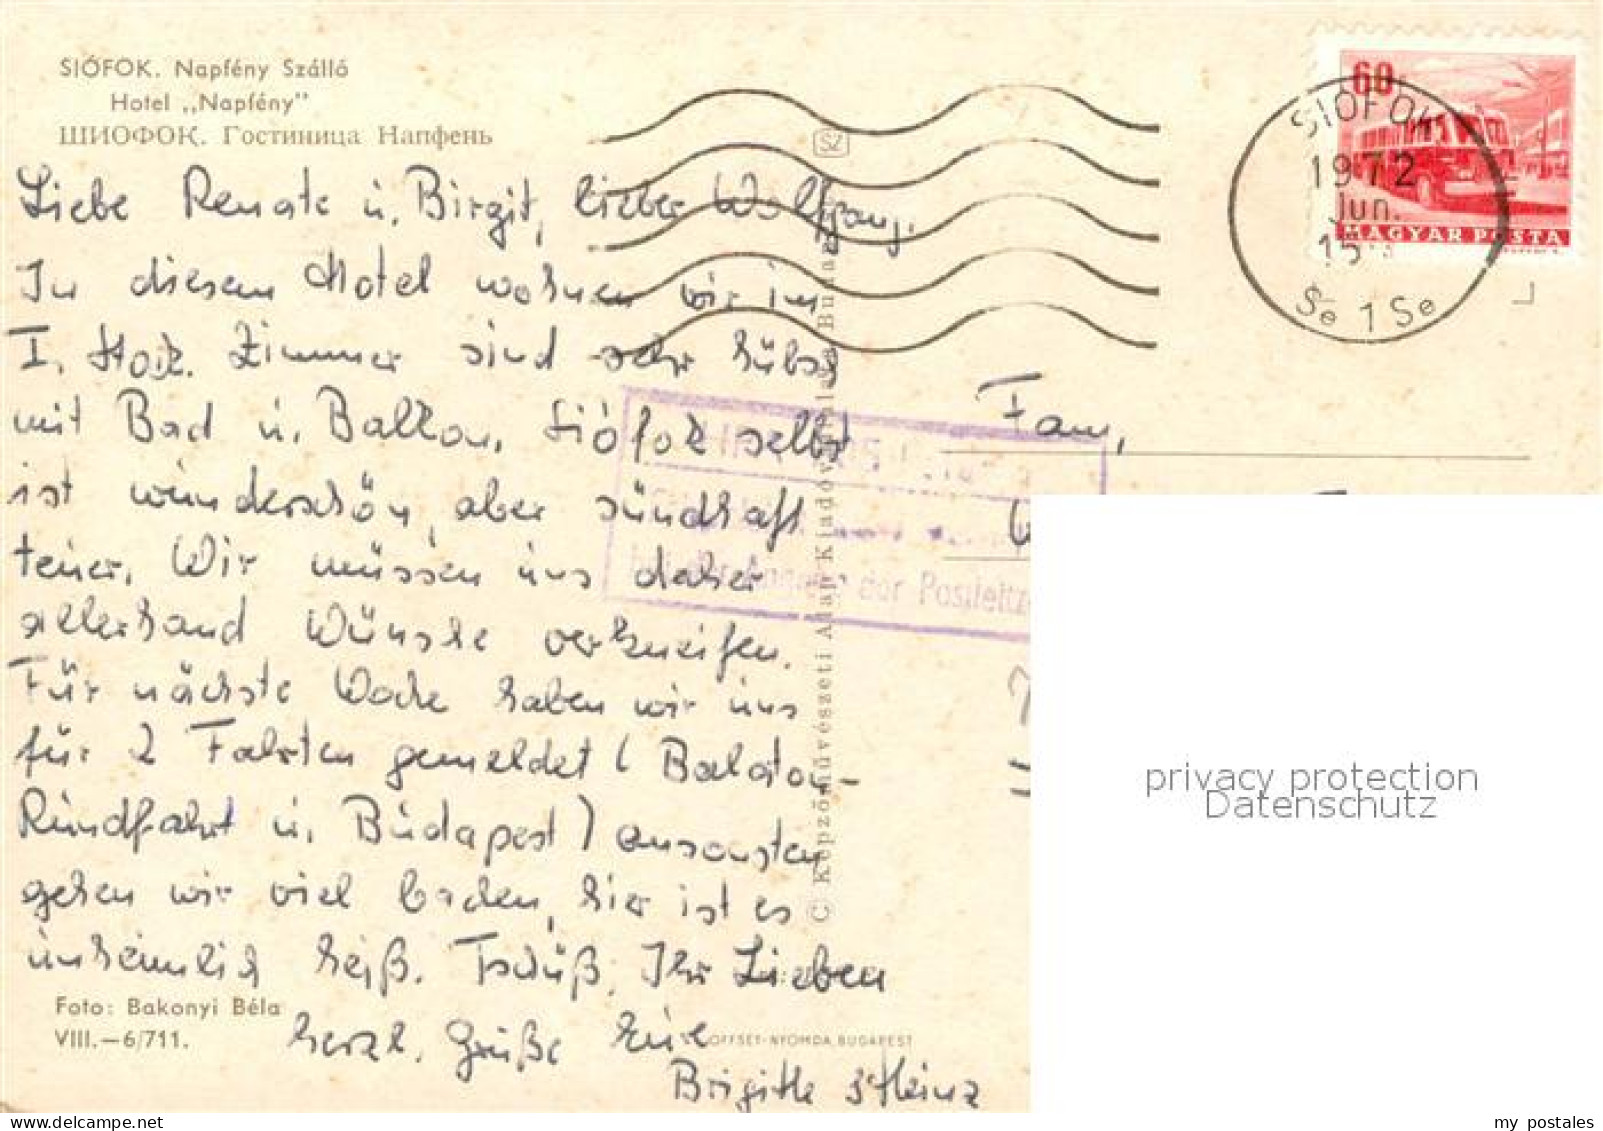 SIÓFOK. Napfény Szálló
Hotel „Napfény"
ШИОФОК. Гостиница Напфень
Liebe Renate u. Birgit, lieber Wolfgang.
In diesem Hotel wohnen wir im
I. Stock. Zimmer sind sehr hübsch
mit Bad u. Balkon. Siófok selbst
ist wunderschön, aber sündhaft
teuer. Wir müssen uns daher
allerhand Wünsche verkneifen.
Für nächste Woche haben wir uns
für 2 Fahrten gemeldet (Balaton-
Rundfahrt u. Budapest) ansonsten
gehen wir viel baden, hier ist es
unheimlich heiß. Tschüß, Ihr Lieben
herzl. Grüße Eure
Brigitte & Heinz
Foto: Bakonyi Béla
VIII.—6/711.
OFFSET-NYOMDA, BUDAPEST
© Képzőművészeti Alap Kiadóvállalata, Budapest
SZ
60
MAGYAR POSTA
SIÓFOK
1972
Jun.
15
Se 1 Se
der Postleitz
Fam.
privacy protection
Datenschutz
my postales